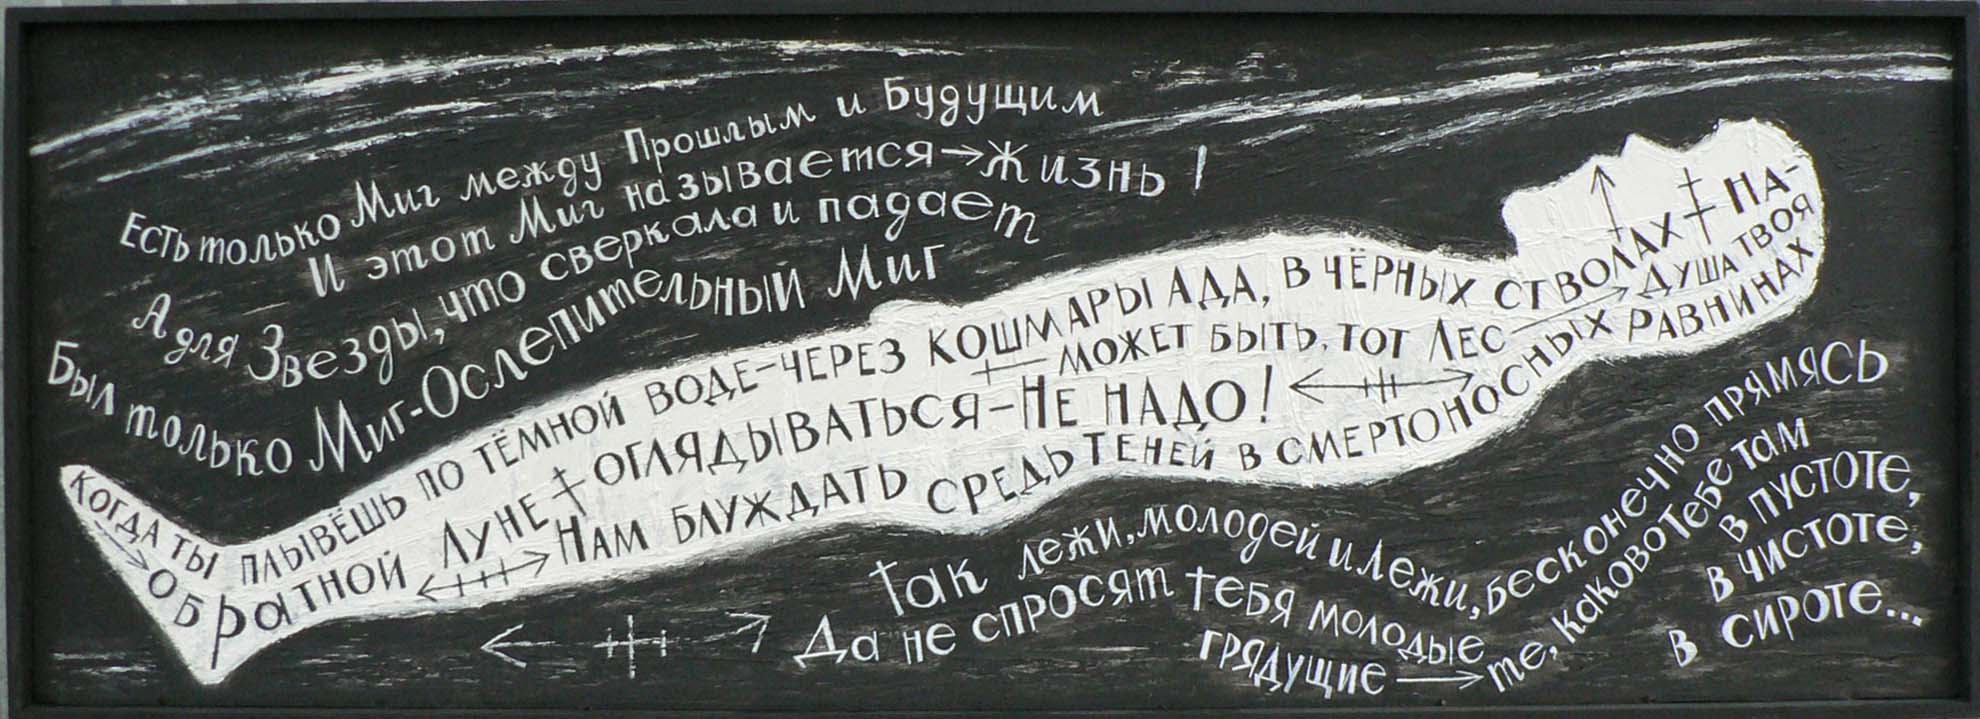 Есть только Миг между Прошлым и Будущим
И этот Миг называется→Жизнь!
А для Звезды, что сверкала и падает
Был только Миг-Ослепительный Миг
КОГДА ТЫ ПЛЫВЁШЬ ПО ТЁМНОЙ ВОДЕ-ЧЕРЕЗ КОШМАРЫ АДА, В ЧЁРНЫХ СТВОЛАХ ПА-
→ОБРАТНОЙ ЛУНЕ ОГЛЯДЫВАТЬСЯ-НЕ НАДО!
МОЖЕТ БЫТЬ, ТОТ ЛЕС→ДУША ТВОЯ
НАМ БЛУЖДАТЬ СРЕДЬ ТЕНЕЙ В СМЕРТОНОСНЫХ РАВНИНАХ
Так лежи, молодей и лежи, бесконечно прямясь
Да не спросят тебя молодые
грядущие→те, каково тебе там
в пустоте,
в чистоте,
в сироте...